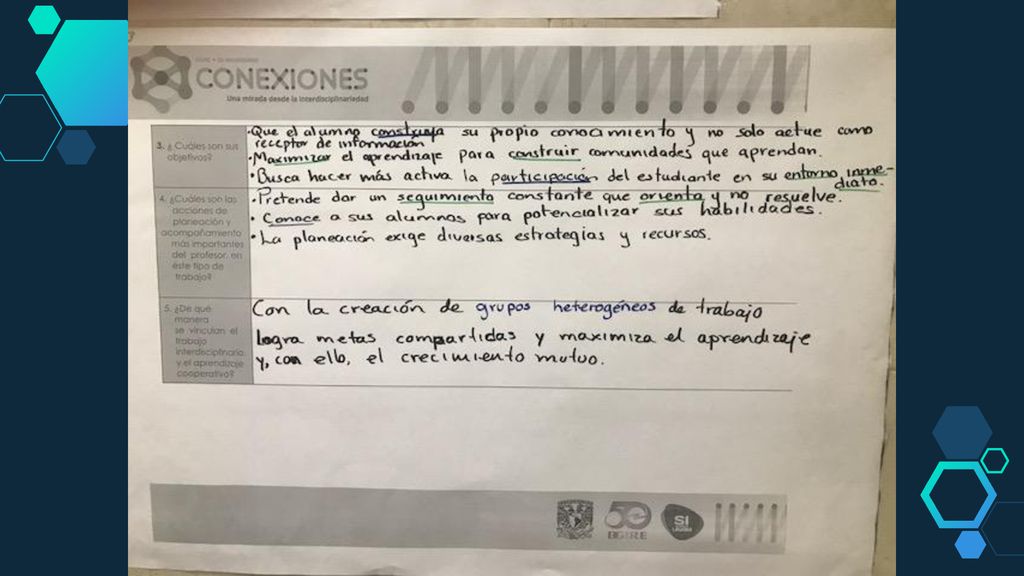 CONEXIONES
Una mirada desde la interdisciplinariedad
3. ¿ Cuáles son sus
objetivos?
•Que el alumno construya su propio conocimiento y no solo actue como
receptor de información
•Maximizar el aprendizaje para construir comunidades que aprendan.
•Busca hacer más activa la participación del estudiante en su entorno inme-
diato.
4. ¿Cuáles son las
acciones de
planeación y
acompañamiento
más importantes
del profesor, en
éste tipo de
trabajo?
•Pretende dar un seguimiento constante que orienta y no resuelve.
• Conoce a sus alumnos para potencializar sus habilidades.
•La planeación exige diversas estrategias y recursos.
5. ¿De qué
manera
se vinculan el
trabajo
interdisciplinario
y el aprendizaje
cooperativo?
Con la creación de grupos heterogéneos de trabajo
logra metas compartidas y maximiza el aprendizaje
y, con ello, el crecimiento mutuo.
50
DGIRE
SI